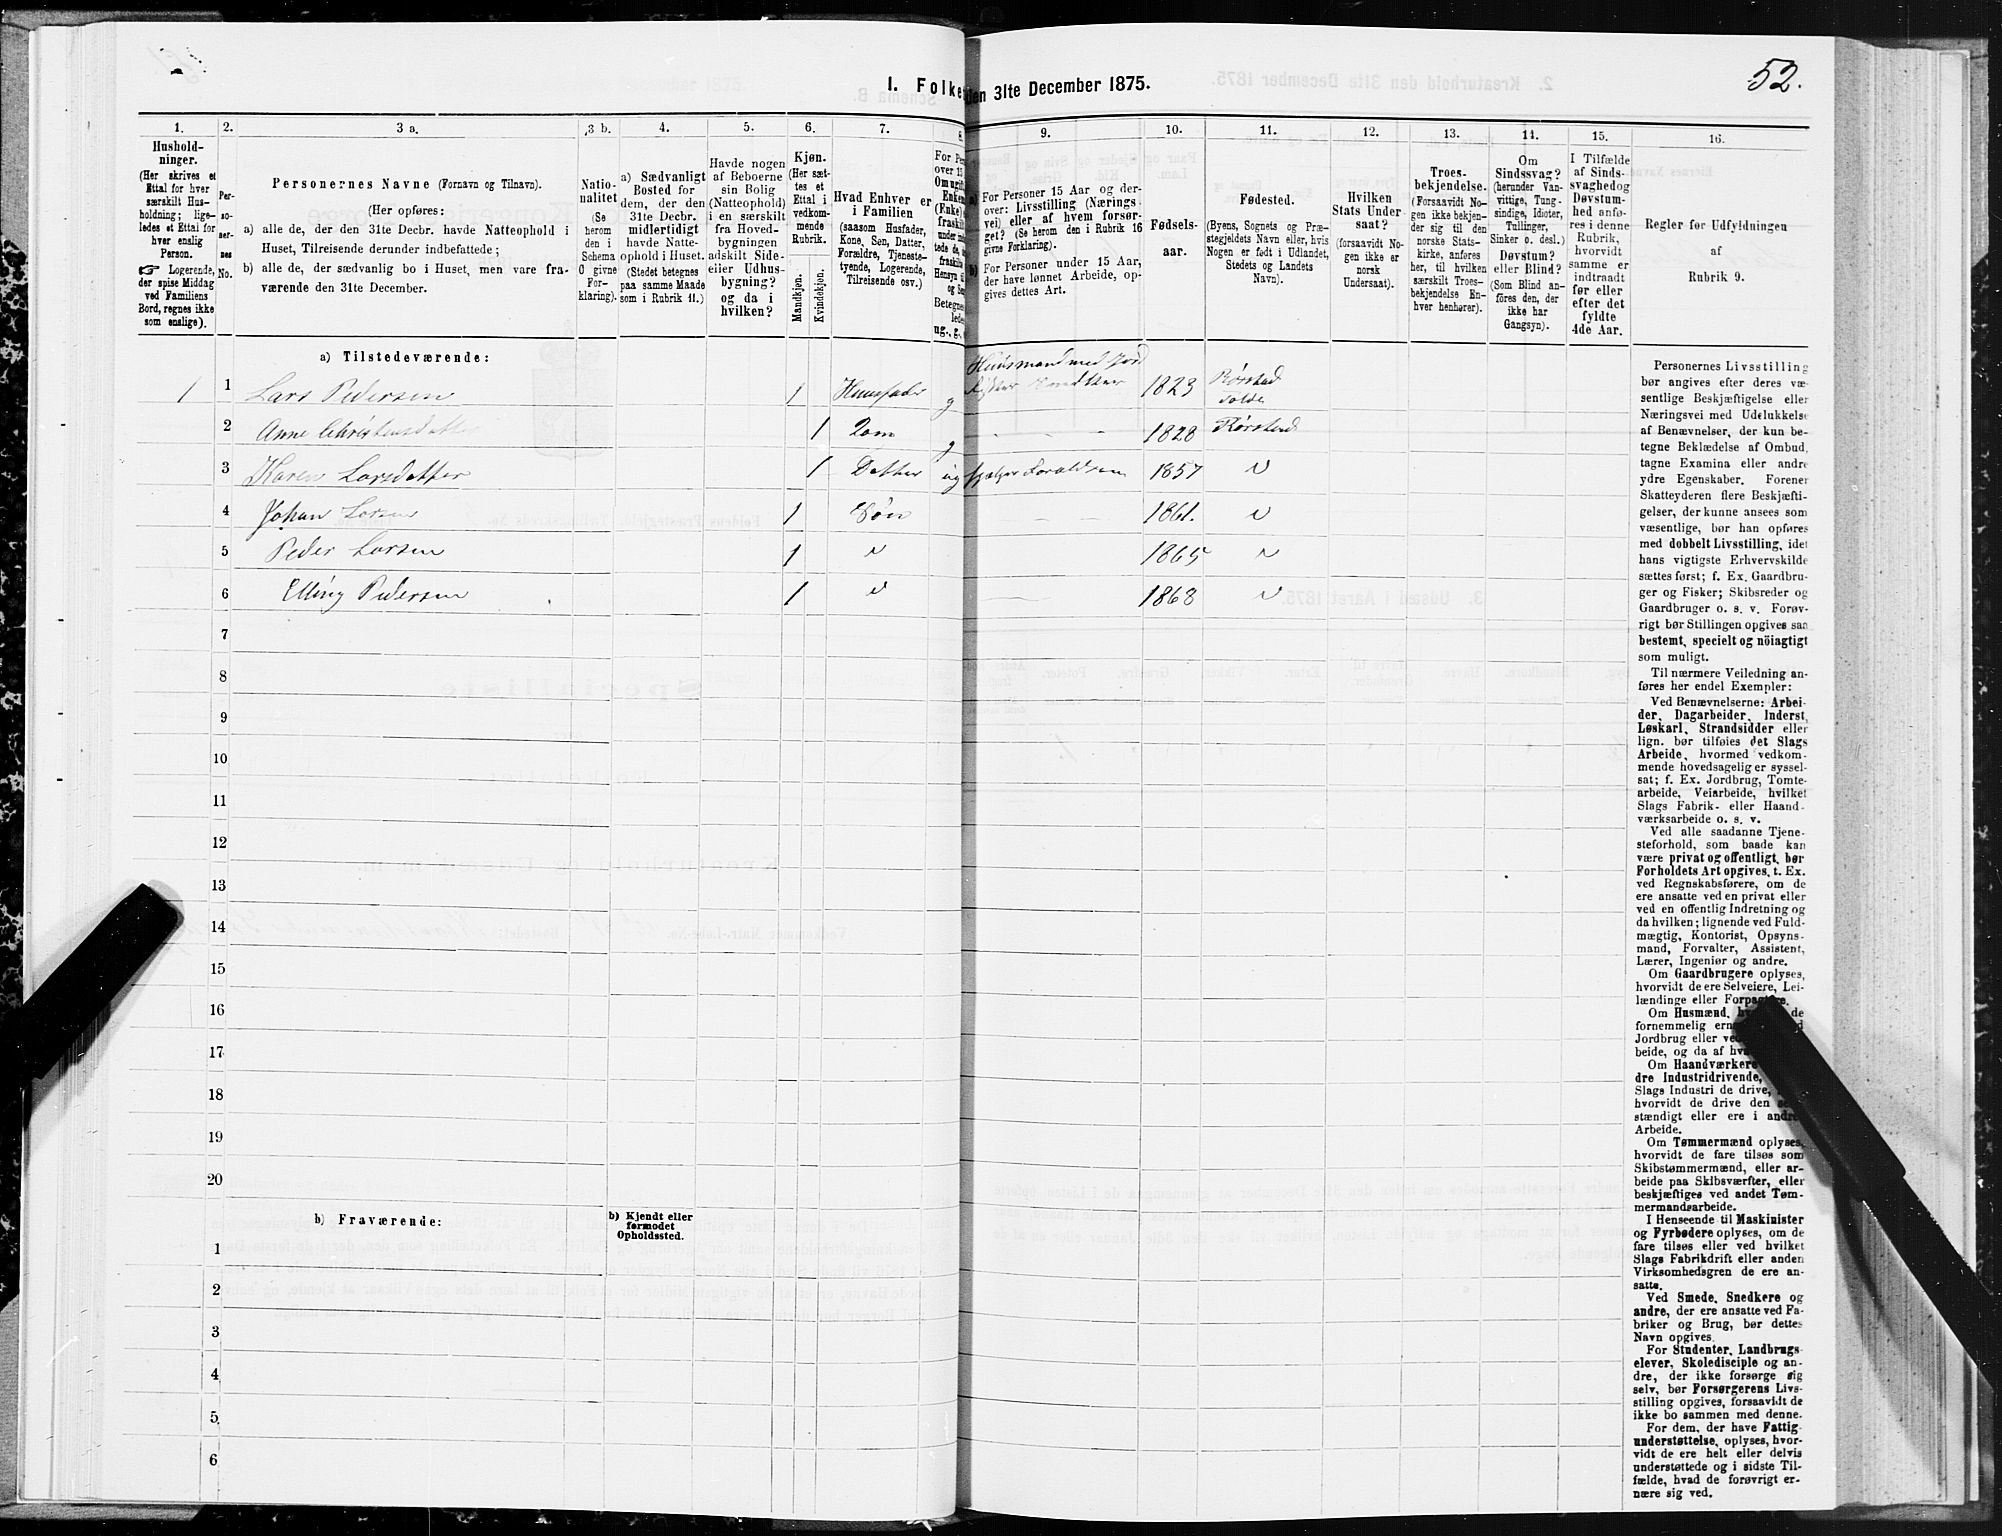 52.
I. Folke
den 31te December 1875.
1.
2.
3 a.
3 b.
4.
5.
6.
7.
8.
9.
10.
11.
12.
13.
14.
15.
16.
Hushold-
ninger.
(Her skrives et
Ettal for hver
særskilt Hus-
holdning; lige-
ledes et Ettal for
hver enslig
Person.
☞ Logerende,
der spise Middag
ved Familiens
Bord, regnes ikke
som enslige).
Per-
so-
ner-
nes
No.
Personernes Navne (Fornavn og Tilnavn).
(Her opføres:
a) alle de, der den 31te Decbr. havde Natteophold i
Huset, Tilreisende derunder indbefattede;
b) alle de, der sædvanlig bo i Huset, men vare fra-
værende den 31te December.
Natio-
nalitet
(Se
herom
den i
Schema
O givne
For-
klaring).
a) Sædvanligt
Bosted for
dem, der den
31te Decbr.
midlertidigt
havde Natte-
ophold i Huset.
(Stedet betegnes
paa samme Maade
som i Rubrik 11.)
Havde nogen
af Beboerne
sin Bolig
(Natteophold)
i en særskilt
fra Hoved-
bygningen
adskilt Side-
eller Udhus-
bygning?
og da i
hvilken?
Kjøn.
(Her sæt-
tes et
Ettal i
vedkom-
mende
Rubrik.
Mandkjøn.
Kvindekjøn.
Hvad Enhver er
i Familien
(saasom Husfader,
Kone, Søn, Datter,
Forældre, Tjeneste-
tyende, Logerende,
Tilreisende osv.)
For Pe
over 15
Om ugift
Enke
(Enke)
fraskilt
ug., g.,
a) For Personer 15 Aar og der-
over: Livsstilling (Nærings-
vei) eller af hvem forsør-
get? (Se herom den i Rubrik 16
givne Forklaring).
b) For Personer under 15 Aar,
der have lønnet Arbeide, op-
gives dettes Art.
Fødsels-
aar.
Fødested.
(Byens, Sognets og Præ-
stegjeldets Navn eller, hvis
Nogen er født i Udlandet,
Stedets og Landets
Navn).
Hvilken
Stats Under-
saat?
(forsaavidt No-
gen ikke er
norsk
Undersaat).
Troes-
bekjendelse.
(Forsaavidt No-
gen ikke bekjen-
der sig til den
norske Stats-
kirke, anføres
her, til hvilken
særskilt Troes-
bekjendelse En-
hver henhører).
Om
Sindssvag?
(herunder Van-
vittige, Tung-
sindige, Idioter,
Tullinger,
Sinker o. desl.)
Døvstum?
eller Blind?
(Som Blind an-
føres den, der
ikke har
Gangsyn).
I Tilfælde
af Sinds-
svaghed og
Døvstum-
hed anfø-
res i denne
Rubrik,
hvorvidt
samme er
indtraadt
før eller
efter det
fyldte
4de Aar.
Regler for Udfyldningen
af
Rubrik 9.
a) Tilstedeværende:
1 1 Lars Pedersen 1 Huusfader g Huusmand med Jord 1823 Rørstad
2 Anne Christensdatter 1 g 1828 Rørstad
3 Karen Larsdatter 1 Datter ug 1857 "
4 Johan Larsen 1 Søn 1861. "
5 Peder Larsen 1 " 1865 "
6 Elling Pedersen 1 " 1868 "
7
8
9
10
11
12
13
14
15
16
17
18
19
20
b) Fraværende:
b) Kjendt eller
formodet
Opholdssted.
1
2
3
4
5
6
Personernes Livsstilling
bør angives efter deres væ-
sentlige Beskjæftigelse eller
Næringsvei med Udelukkelse
af Benævnelser, der kun be-
tegne Beklædelse af Ombud,
tagne Examina eller andre
ydre Egenskaber. Forener
Skatteyderen flere Beskjæfti-
gelser, der kunne ansees som
væsentlige, bør han opføres
med dobbelt Livsstilling, idet
hans vigtigste Erhvervskilde
sættes først; f. Ex. Gaardbru-
ger og Fisker; Skibsreder og
Gaardbruger o. s. v. Forøv-
rigt bør Stillingen opgives saa
bestemt, specielt og nöiagtigt
som muligt.
Til nærmere Veiledning an-
føres her endel Exempler:
Ved Benævnelserne: Arbei-
der, Dagarbeider, Inderst,
Løskarl, Strandsidder eller
lign. bør tilføies det Slags
Arbeide, hvormed vedkom-
mende hovedsagelig er syssel-
sat; f. Ex. Jordbrug, Tomte-
arbeide, Veiarbeide, hvilket
Slags Fabrik- eller Haand-
værksarbeide o. s. v.
Ved alle saadanne Tjene-
steforhold, som baade kan
være privat og offentligt, bør
Forholdets Art opgives, t. Ex.
ved Regnskabsførere, om de
ere ansatte ved en privat eller
ved en offentlig Indretning og
da hvilken; lignende ved Fuld-
mægtig, Kontorist, Opsyns-
mand, Forvalter, Assistent,
Lærer, Ingeniør og andre.
Om Gaardbrugere oplyses,
hvorvidt de ere Selveiere, Lei-
lændinge eller Forpagtere.
Om Husmænd, de
fornemmelig
Jordbrug eller
beide, og da af
Om Haandværkere
dre Industridrivende,
Slags Industri de drive,
hvorvidt de drive den
stændigt eller ere i andres
Arbeide.
Om Tømmermænd oplyses,
hvorvidt de fare tilsøs som
Skibstømmermænd, eller ar-
beide paa Skibsværfter, eller
beskjæftiges ved andet Tøm-
mermandsarbeide.
I Henseende til Maskinister
og Fyrbødere oplyses, om de
fare tilsøs eller ved hvilket
Slags Fabrikdrift eller anden
Virksomhedsgren de ere an-
satte.
Ved Smede, Snedkere og
andre, der ere ansatte ved Fa-
briker og Brug, bør dettes
Navn opgives.
For Studenter, Landbrugs-
elever, Skoledisciple og an-
dre, der ikke forsørge sig
selv, bør Forsørgerens Livs-
stilling opgives, forsaavidt de
ikke bo sammen med denne.
For dem, der have Fattig-
understøttelse, oplyses, hvor-
vidt de ere helt eller delvis
understøttede og i sidste Til-
fælde, hvad de forøvrigt er-
nære sig ved.